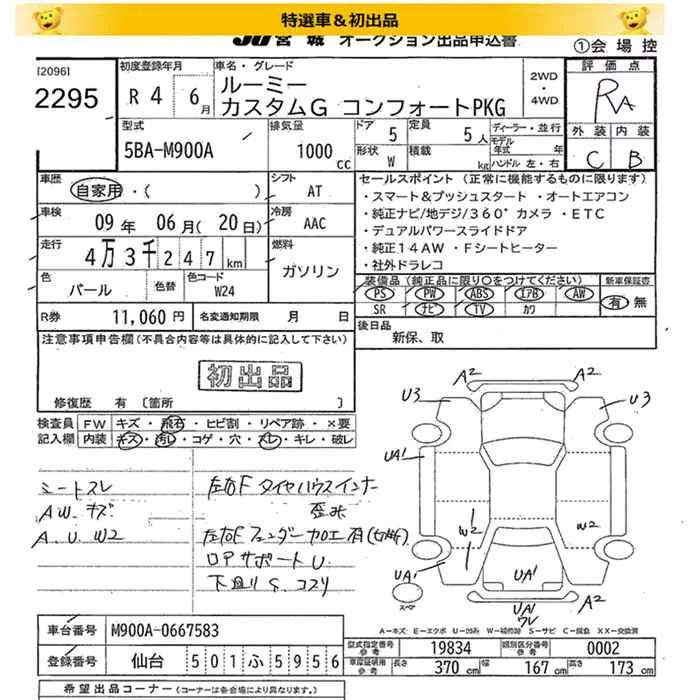 特選車＆初出品
JU宮城 オークション出品申込書
①会場控
[2096]
2295
初度登録年月
R 4 6月
車名・グレード
ルーミー
カスタムG コンフォートPKG
2WD
・
4WD
評価点
RA
外装 内装
C B
型式
5BA-M900A
排気量
1000cc
ドア 5
定員 5人
ディーラー・並行
モデル年式 年式
形状 W
積載 kg
ハンドル 左・右
車歴
自家用・( )
シフト
AT
車検
09年 06月(20日)
冷房
AAC
走行
4万3千247km
燃料
ガソリン
色
パール
色替
色コード
W24
R券 11,060円
名変通知期限 月 日
セールスポイント（正常に機能するものに限ります）
・スマート&プッシュスタート ・オートエアコン
・純正ナビ/地デジ/360°カメラ ・ETC
・デュアルパワースライドドア
・純正14AW ・Fシートヒーター
・社外ドラレコ
装備品（純正品に限り○をつけてください）
新車保証書
PS PW ABS エアB AW
SR ナビ TV カワ
有・無
後日品
新保、取
注意事項申告欄(不具合内容等は具体的に記入して下さい)
初出品
修復歴 有〔箇所 〕
検査員記入欄
FW キズ・飛石・ヒビ割・リペア跡・×要
内装 キズ・汚レ・コゲ・穴・スレ・キレ・破レ
シートスレ
AW.キズ
A.U.W2
左右F タイヤハウスインナー
歪み
左右F フェンダー加工有(切断)
ロアサポートU.
下廻りS.コスリ
A2 A2
U3 U3
UA1
W2 W2
UA1 UA1
UA1
ワレ
A2
スペア
A－キズ E－エクボ U－凹み W－補修跡 S－サビ C－腐食 XX－交換済
車台番号 M900A-0667583
登録番号 仙台 501ふ5956
型式指定番号 参考 19834
類別区分番号 参考 0002
車庫証明用 参考 長さ 370 cm 幅 167 cm 高さ 173 cm
希望出品コーナー（コーナーは各会場により異なります。）